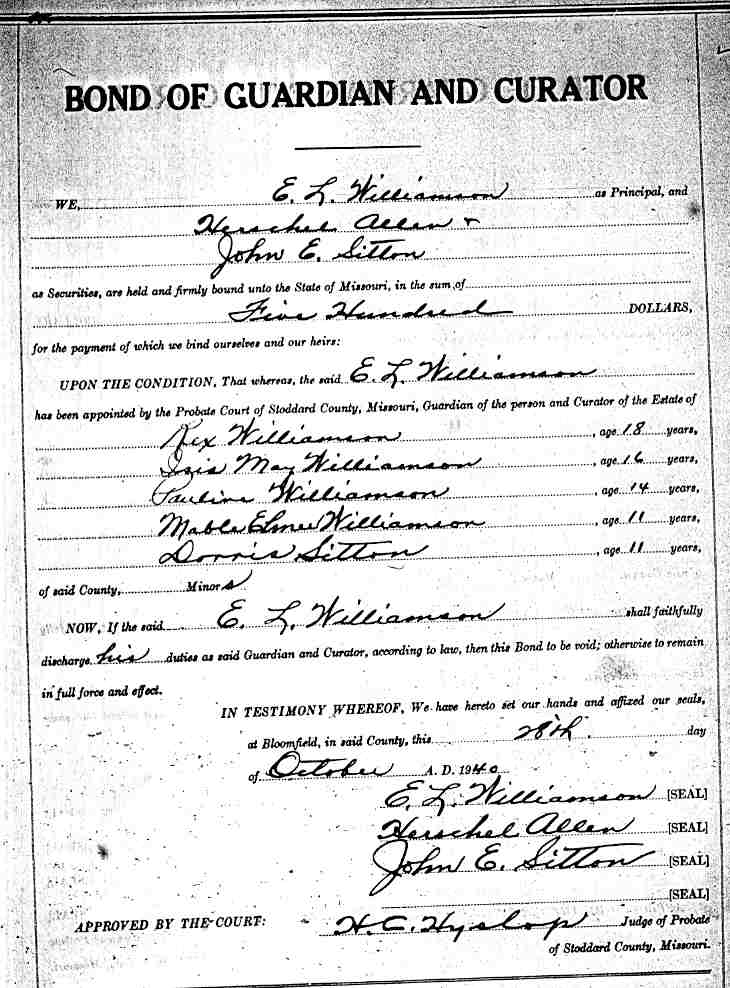 BOND OF GUARDIAN AND CURATOR
WE, E. L. Williamson as Principal, and
Herschel Allen +
John E. Sitton
as Securities, are held and firmly bound unto the State of Missouri, in the sum of
Five Hundred DOLLARS,
for the payment of which we bind ourselves and our heirs:
UPON THE CONDITION, That whereas, the said E. L. Williamson
has been appointed by the Probate Court of Stoddard County, Missouri, Guardian of the person and Curator of the Estate of
Rex Williamson, age 18 years,
Iris May Williamson, age 16 years,
Pauline Williamson, age 14 years,
Mable Williamson, age 11 years,
Dorris Sitton, age 11 years,
of said County, Minors
NOW, If the said E. L. Williamson shall faithfully
discharge his duties as said Guardian and Curator, according to law, then this Bond to be void; otherwise to remain
in full force and effect.
IN TESTIMONY WHEREOF, We have hereto set our hands and affixed our seals,
at Bloomfield, in said County, this 28th day
of October A. D. 1940
E. L. Williamson [SEAL]
Herschel Allen [SEAL]
John E. Sitton [SEAL]
[SEAL]
APPROVED BY THE COURT: H. C. Hyslop Judge of Probate
of Stoddard County, Missouri.